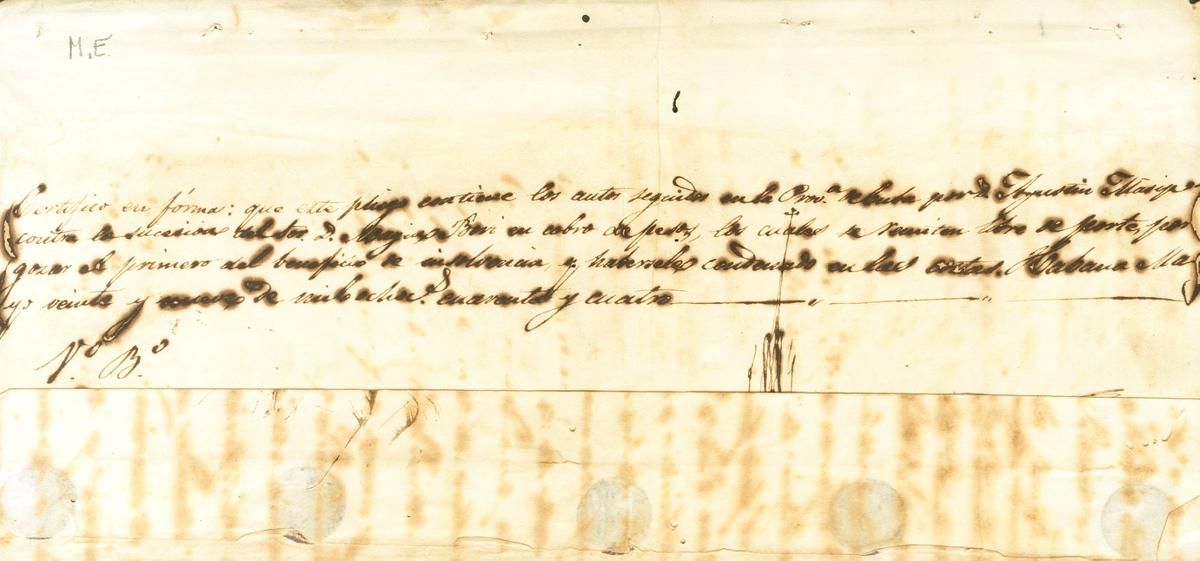 M.E.
Certifico en forma: que este pliego contiene los autos seguidos en la Prov.ª de Cuba por D. Agustin Masip
contra la sucesion del Sor. D. en cobro de pesos, los cuales se remiten libre de porte, por
gozar el primero del beneficio de insolvencia, y haversele condenado en las costas. Habana Ma-
yo veinte y nueve de mil ocho.s cuarenta y cuatro
V.º B.º